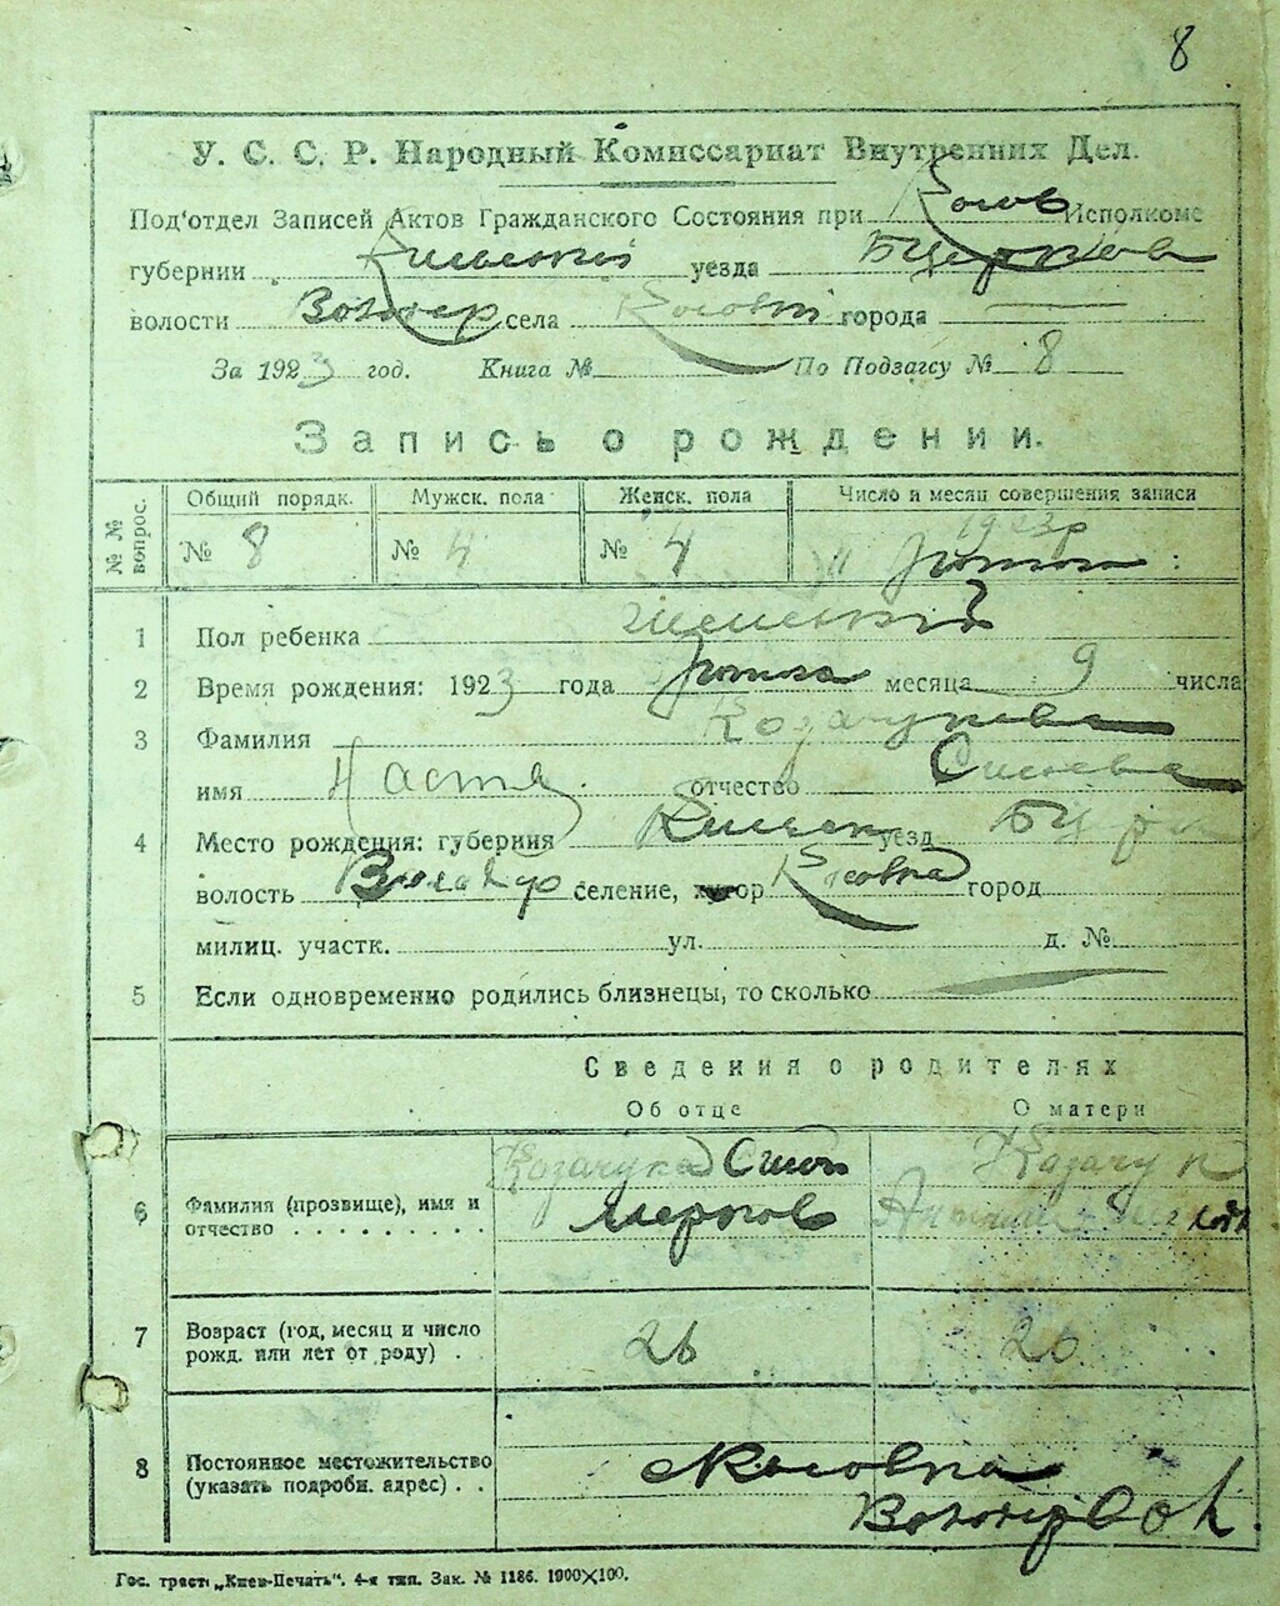 8
У. С. С. Р. Народный Комиссариат Внутренних Дел.
Под‘отдел Записей Актов Гражданского Состояния при Косов Исполкоме
губернии Киевский уезда БЦерков
волости Володар села Косовки города
За 1923 год. Книга № По Подзагсу № 8
Запись о рождении.
№ № вопрос.
Общий порядк. Мужск. пола Женск. пола Число и месяц совершения записи
1923р
№ 8 № 4 № 4
1 Пол ребенка Женский
2 Время рождения: 1923 года месяца 9 числа
3 Фамилия Козачукова
имя Настя отчество
4 Место рождения: губерния Киевск уезд БЦерк
волость Володар селение, хутор Косовка город
милиц. участк. ул. д. №
5 Если одновременно родились близнецы, то сколько
Сведения о родителях
Об отце О матери
Козачук Козачук
6 Фамилия (прозвище), имя и
отчество
7 Возраст (год, месяц и число
рожд. или лет от роду) . 26 20
8 Постоянное местожительство Косовка
(указать подробн. адрес) . . Володар вол.
Гос. трест „Киев-Печать“. 4-я тип. Зак. № 1186. 1000×100.